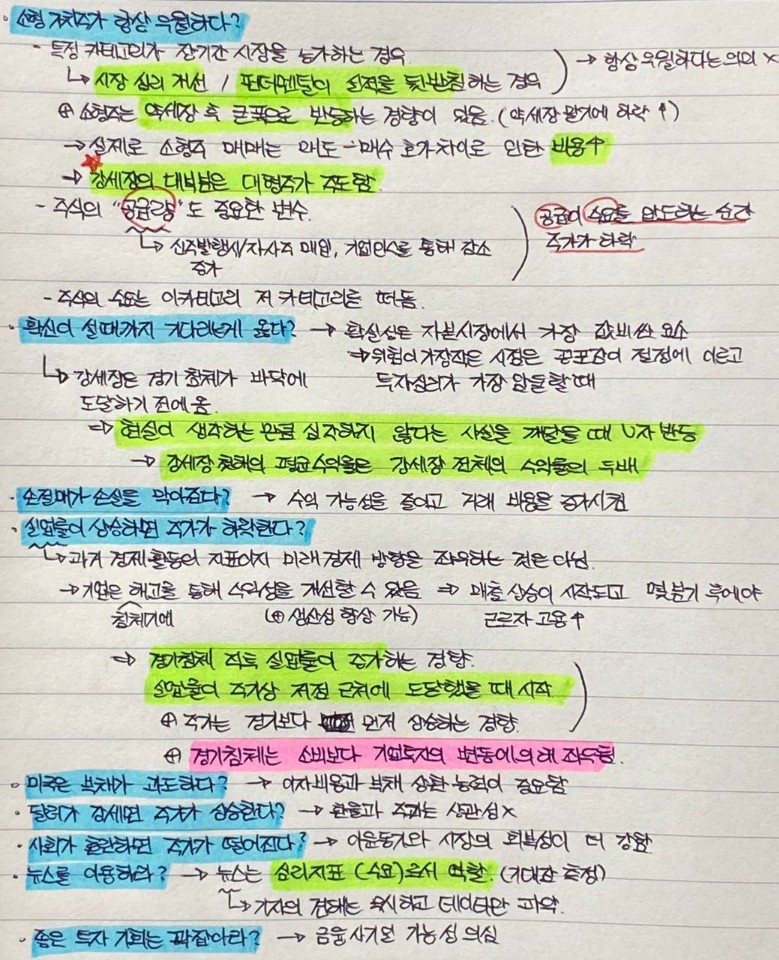 · 소형 가치주가 항상 우월하다?
- 특정 카테고리가 장기간 시장을 능가하는 경우 → 항상 우월하다는 의미 X
↳ 시장 심리 개선 / 펀더멘틀이 실적을 뒷받침하는 경우
⊕ 소형주는 약세장 후 큰폭으로 반등하는 경향이 있음. (약세장 말기에 하락 ↑)
→ 실제로 소형주 매매는 매도-매수 호가차이로 인한 비용↑
→ 강세장의 대부분은 대형주가 주도함.
- 주식의 "공급량"도 중요한 변수. 공급이 수요를 압도하는 순간
주가가 하락
↳ 신주발행시/자사주 매입, 기업인수를 통해 감소
증가
- 주식의 수요는 이카테고리 저 카테고리를 떠돔.
· 확신이 설때까지 기다리는게 옳다? → 확실성은 자본시장에서 가장 값비싼 요소
⇒ 위험이 가장작은 시점은 공포감이 절정에 이르고
투자심리가 가장 암울할때
↳ 강세장은 경기 침체가 바닥에
도달하기 전에 옴.
⇒ 현실이 생각하는 만큼 심각하지 않다는 사실을 깨달을 때 V자 반등
→ 강세장 첫해의 평균수익율은 강세장 전체의 수익률의 두배
· 손절매가 손실을 막아준다? → 수익 가능성을 줄이고 거래 비용을 증가시킴
· 실업률이 상승하면 주가가 하락한다?
↳ 과거 경제 활동의 지표이지 미래경제 방향을 좌우하는 것은 아님.
→ 기업은 해고를 통해 수익성을 개선할 수 있음 ⇒ 매출 상승이 시작되고 몇분기 후에야
침체기에 (⊕ 생산성 향상 가능) 근로자 고용↑
⇒ 경기침체 직후 실업률이 증가하는 경향.
실업률이 주기상 저점 근처에 도달했을 때 시작
⊕ 주가는 경기보다 먼저 상승하는 경향.
⊕ 경기침체는 소비보다 기업투자의 변동에의해 좌우됨.
· 미국은 부채가 과도하다? → 이자비용과 부채 상환 능력이 중요함
· 달러가 강세면 주가가 상승한다? → 환율과 주가는 상관성 X
· 사회가 혼란하면 주가가 떨어진다? → 이윤동기와 시장의 회복성이 더 강함
· 뉴스를 이용하라? → 뉴스는 심리지표 (수요)로서 역할. (기대감 측정)
↳ 기자의 견해는 무시하고 데이터만 파악.
· 좋은 투자 기회는 꽉잡아라? → 금융사기일 가능성 의심